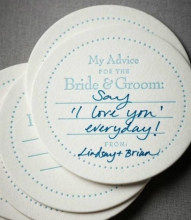 My Advice
FOR THE
Bride & Groom:
Say
'I love you'
everyday!
FROM:
Lindsay + Brian